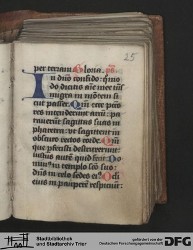 25
per terram Gloria. ps.
In dño confido: qmo
do dicitis aïe mee trãs
migra in mõtem si
cut passer. Qm ecce pecca
tores intenderunt arcũ: pa
rauerũt sagittas suas in
pharetra: ut sagittent in
obscuro rectos corde. Qm
que pfecisti destruxerunt:
iustus autẽ quid fecit. Do
minus in templo sctõ suo:
dñs in celo sedes eius. Oc
culi eius in pauperẽ respiciũt:
Stadtbibliothek
und Stadtarchiv Trier
gefördert von der
Deutschen Forschungsgemeinschaft
DFG